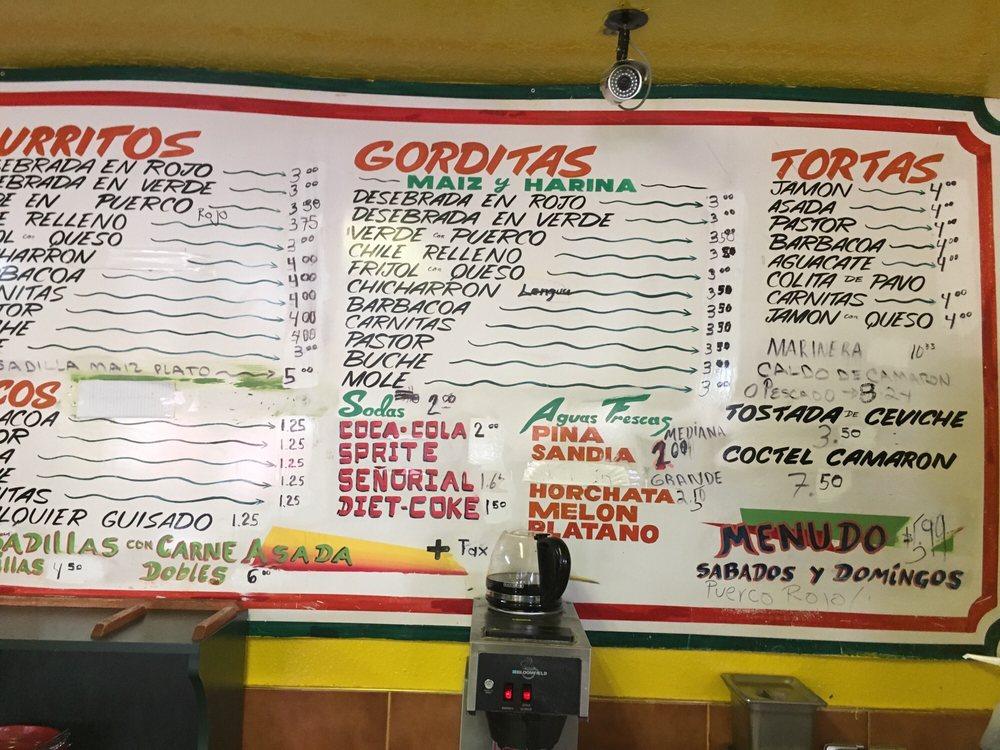 URRITOS
SEBRADA EN ROJO 3.00
EBRADA EN VERDE 3.00
DE EN PUERCO Rojo 3.50
E RELLENO 3.75
OL con QUESO 3.00
CHARRON 4.00
BACOA 4.00
NITAS 4.00
TOR 4.00
HE 4.00
E 3.00
SADILLA MAIZ PLATO 5.00
COS
ACOA 1.25
OR 1.25
A 1.25
E 1.25
ITAS 1.25
ALQUIER GUISADO 1.25
SADILLAS con CARNE ASADA
ILLAS 4.50 DOBLES 6.00
GORDITAS
MAIZ y HARINA
DESEBRADA EN ROJO 3.00
DESEBRADA EN VERDE 3.00
VERDE con PUERCO 3.50
CHILE RELLENO
FRIJOL con QUESO 3.00
CHICHARRON Lengua 3.50
BARBACOA 3.50
CARNITAS 3.50
PASTOR 3.50
BUCHE 3.50
MOLE 3.00
Sodas 2.00
COCA-COLA 2.00
SPRITE
SEÑORIAL
DIET-COKE 1.50
Aguas Frescas
PINA MEDIANA
SANDIA 2.00
GRANDE
HORCHATA 2.50
MELON
PLATANO
+ Tax
TORTAS
JAMON 4.00
ASADA 4.00
PASTOR 4.00
BARBACOA 4.00
AGUACATE 4.00
COLITA DE PAVO
CARNITAS 4.00
JAMON con QUESO 4.00
MARINERA
CALDO DE CAMARON
O PESCADO 8.24
TOSTADA DE CEVICHE
3.50
COCTEL CAMARON
7.50
MENUDO
SABADOS Y DOMINGOS
Puerco Rojo
BLOOMFIELD